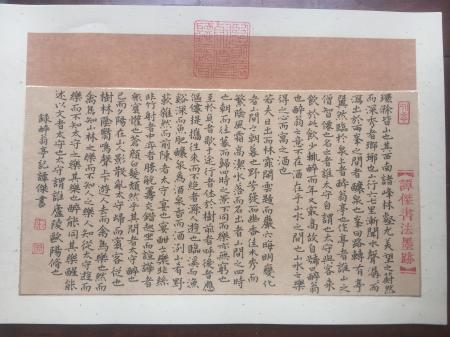 【譚傑書法墨跡】
環滁皆山也其西南諸峰林壑尤美望之蔚然
而深秀者瑯琊也山行六七里漸聞水聲潺而
瀉出於兩峯之間者釀泉也峯回路轉有亭
翼然臨於泉上者醉翁亭也作亭者誰山之
僧智僊也名之者誰太守自謂也太守與客來
飲於此飲少輒醉而年又最高故自號曰醉翁
也醉翁之意不在酒在乎山水之間也山水之樂
得之心而寓之酒也
若夫日出而林霏開雲歸而巖穴暝晦明變化
者山間之朝暮也野芳發而幽香佳木秀而
繁陰風霜高潔水落而石出者山間之四時
也朝而往暮而歸四時之景不同而樂亦無窮也
至於負者歌于途行者休於樹前者呼後者應
傴僂提攜往來而不絕者滁人遊也臨溪而漁
谿深而魚肥釀泉為酒泉香而酒洌山肴野
蔌雜然而前陳者太守宴也宴酣之樂非絲
非竹射者中弈者勝觥籌交錯起坐而諠譁者
眾賓懽也蒼顏白髮頹然乎其間者太守醉也
已而夕陽在山人影散亂太守歸而賓客從也
樹林陰翳鳴聲上下遊人去而禽鳥樂也然而
禽鳥知山林之樂而不知人之樂人知從太守遊而
樂而不知太守之樂其樂也醉能同其樂醒能
述以文者太守也太守謂誰廬陵歐陽脩也
錄醉翁亭記譚傑書